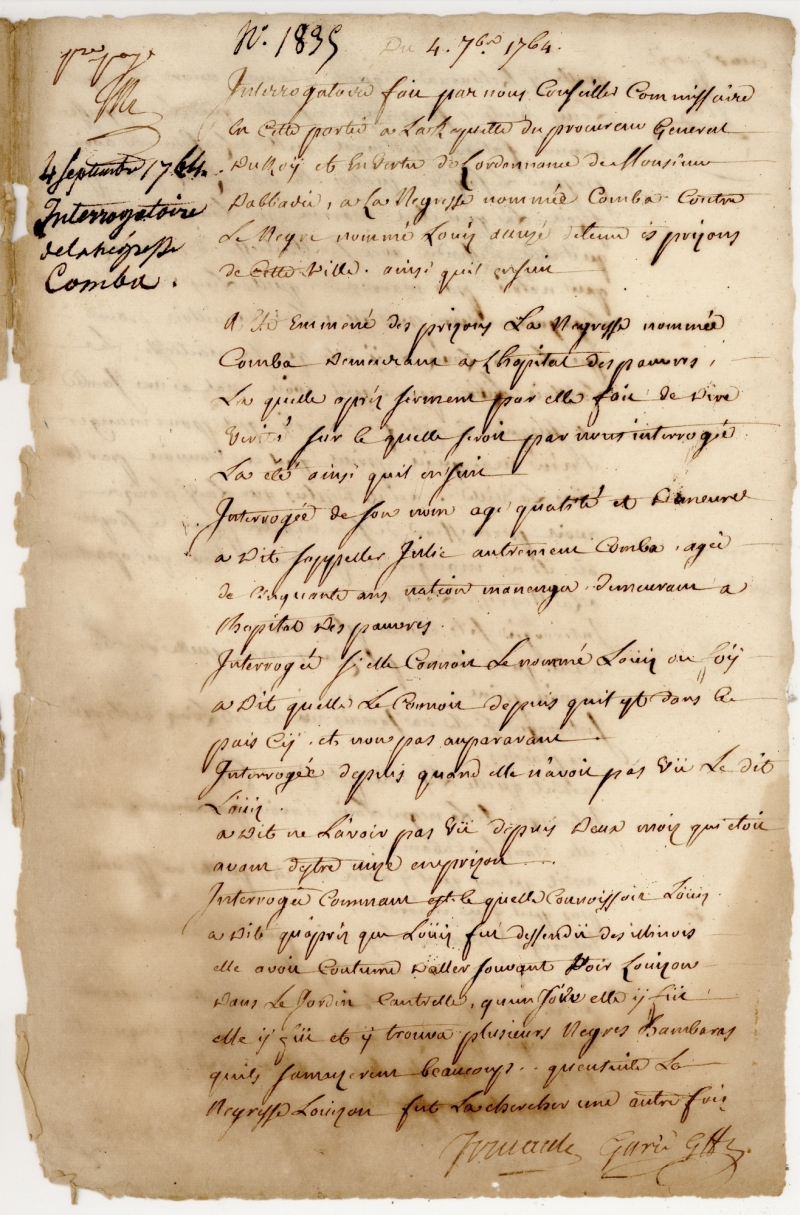 N.° 1835 Du 4. 7bre 1764.
pre page
4 Septembre 1764.
Interrogatoire
de la négresse
Comba.
Interrogatoire fait par nous Conseiller Commissaire
En Cette partie a La Requette du procureur General
Du Roÿ et En Vertu de Lordonnance de Monsieur
Dabbadie, a La Negresse nommée Comba Contre
Le Negre nommé Loüis detenu es prizons
de Cette Ville. ainsi quil ensuit
A Eté Emmené des prizons La Negresse nommée
Comba Demeurant a Lhopital des pauvres,
La quelle aprés serment par elle fait de Dire
Verité sur le quelle seroit par nous interrogée
La été ainsi quil ensuit
Interrogée de son nom age qualité et Demeure
a Dit sappeller Julie autrement Comba, agée
de Cinquante ans nation manenga demeurant a
lhopital Des pauvres.
Interrogée si elle Connoit Le nommé Loüis ou foÿ
a Dit quelle Le Connoit depuis quil est dans le
païs Cÿ, et non pas auparavant
Interrogée depuis quand elle n'avoit pas Vü Le dit
Loüis.
a Dit ne L'avoir pas Vü depuis Deux mois qui etoit
avant destre mize en prizon
Interrogée Commant est le quelle Connoissoit Loüis
a Dit quaprés que Loüis fut dessendü des illinois
elle avoit Coutume Daller souvant Voir Louizon
Dans Le Jardin Cantrelle, quun Jour elle ÿ fut
elle ÿ fut et ÿ trouva plusieurs Negres Bambaras
quils samuzerent beaucoup. quensuite La
Negresse Louizon fut La chercher une autre fois